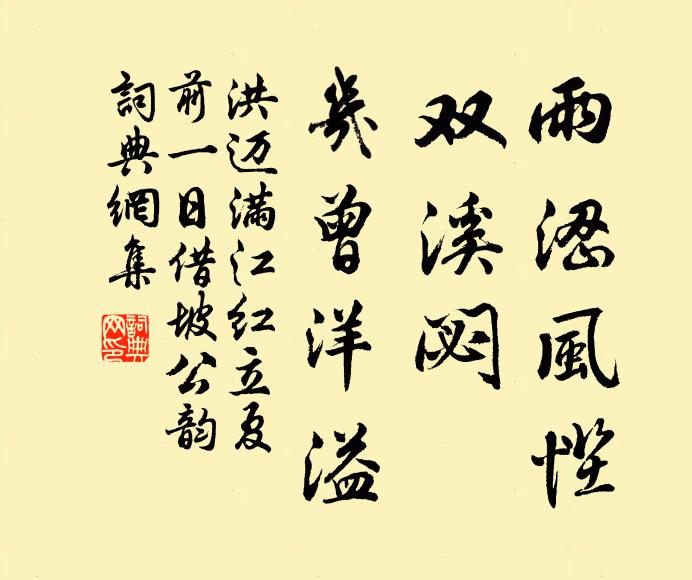 雨涩風悭
双溪閟
幾曾洋溢
洪迈满江红立夏
前一日借坡公韵
詞典網集
詞典
网印